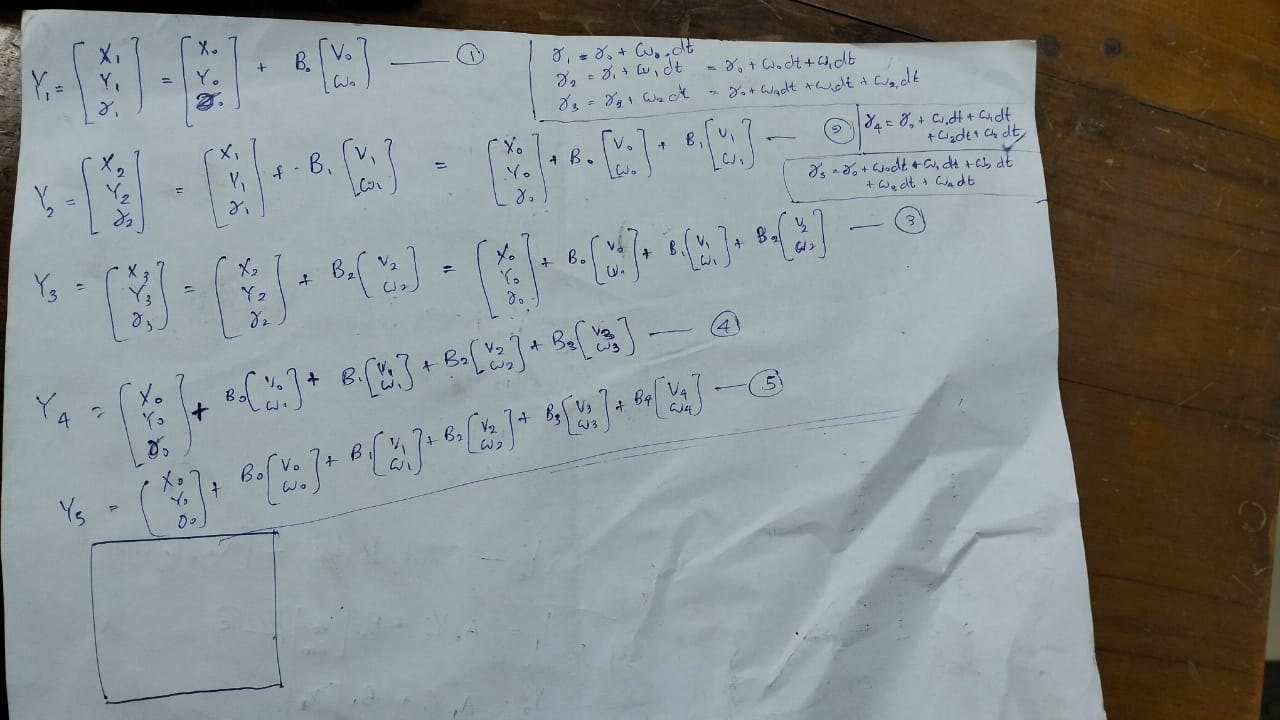 Y₁ = [X₁ Y₁ γ₁] = [X₀ Y₀ γ₀] + B₀ [V₀ ω₀] — ①
γ₁ = γ₀ + ω₀.dt
γ₂ = γ₁ + ω₁dt = γ₀ + ω₀dt + ω₁dt
γ₃ = γ₂ + ω₂dt = γ₀ + ω₀dt + ω₁dt + ω₂dt
Y₂ = [X₂ Y₂ γ₂] = [X₁ Y₁ γ₁] + B₁ [V₁ ω₁] = [X₀ Y₀ γ₀] + B₀ [V₀ ω₀] + B₁ [V₁ ω₁] — ②
γ₄ = γ₀ + ω₀dt + ω₁dt
+ ω₂dt + ω₃dt
γ₅ = γ₀ + ω₀dt + ω₁dt + ω₂dt
+ ω₃dt + ω₄dt
Y₃ = [X₃ Y₃ γ₃] = [X₂ Y₂ γ₂] + B₂ [V₂ ω₂] = [X₀ Y₀ γ₀] + B₀ [V₀ ω₀] + B₁ [V₁ ω₁] + B₂ [V₂ ω₂] — ③
Y₄ = [X₀ Y₀ γ₀] + B₀ [V₀ ω₀] + B₁ [V₁ ω₁] + B₂ [V₂ ω₂] + B₃ [V₃ ω₃] — ④
Y₅ = [X₀ Y₀ γ₀] + B₀ [V₀ ω₀] + B₁ [V₁ ω₁] + B₂ [V₂ ω₂] + B₃ [V₃ ω₃] + B₄ [V₄ ω₄] — ⑤